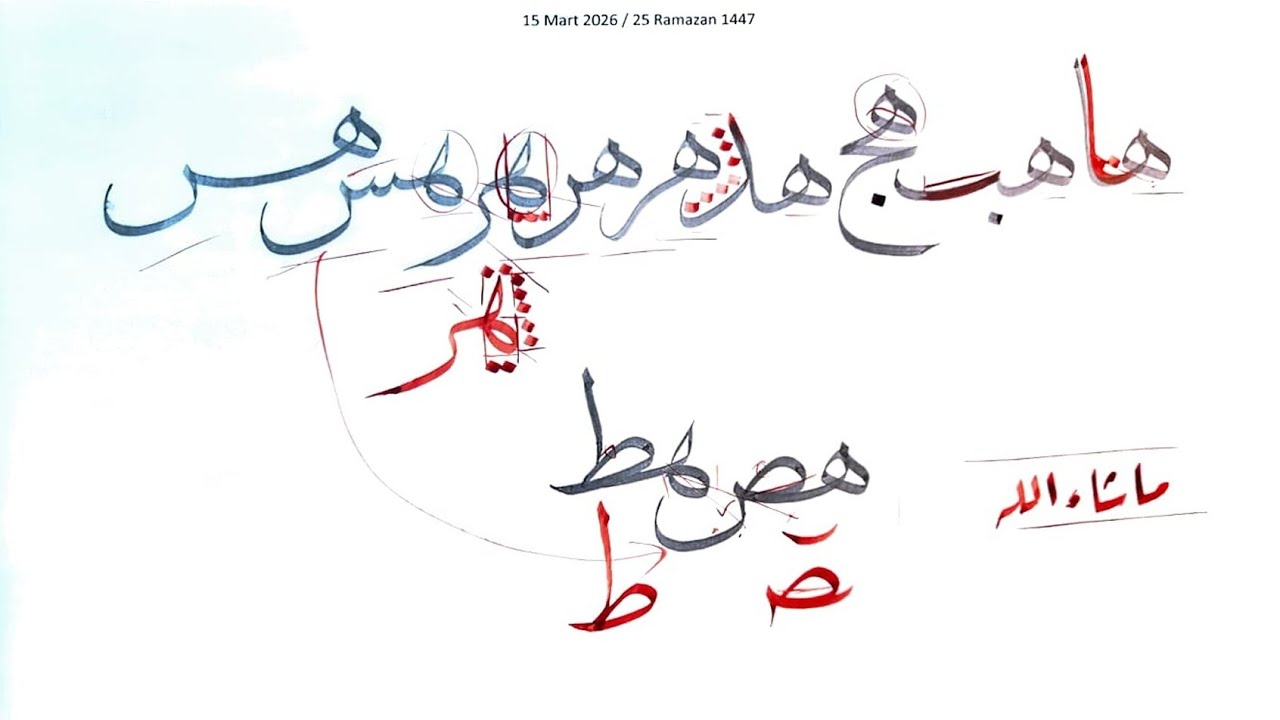 15 Mart 2026 / 25 Ramazan 1447
ها هب هج هد هر هر هر هر هس هس
هر
هص هط
ما شاء الله
ط ص